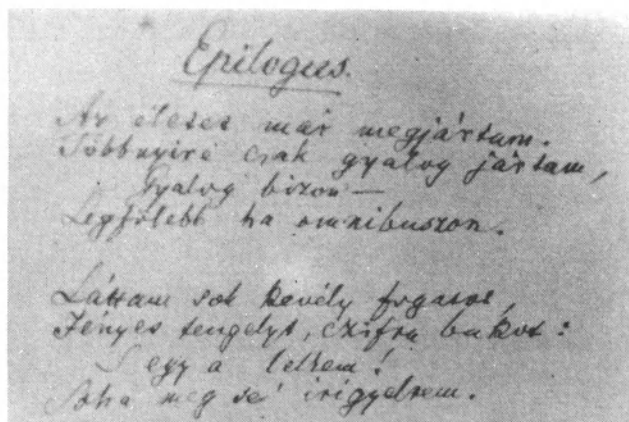 Epilogus.
Az életet már megjártam.
Többnyire csak gyalog jártam,
Gyalog bizon —
Legfölebb ha omnibuszon.
Láttam sok kevély fogatot,
Fényes tengelyt, czifra bakot:
S egy a lelkem!
Soha meg se' irigyeltem.